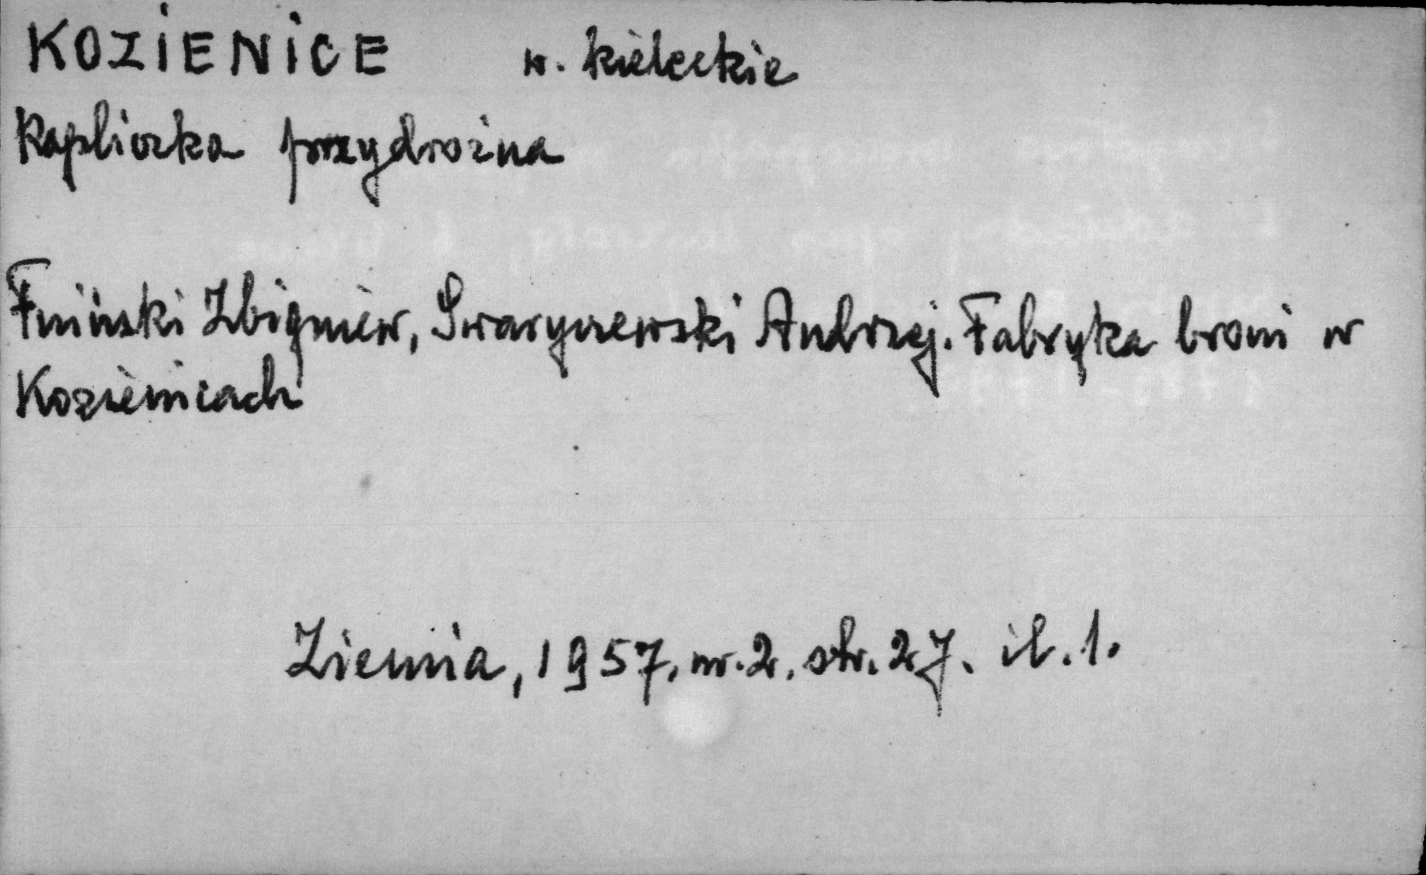 KOZIENICE w. kieleckie
Kapliczka przydrożna
Fniński Zbigniew, Swaryczewski Andrzej. Fabryka broni w
Kozienicach
Ziemia, 1957, nr. 2, str. 27. il. 1.